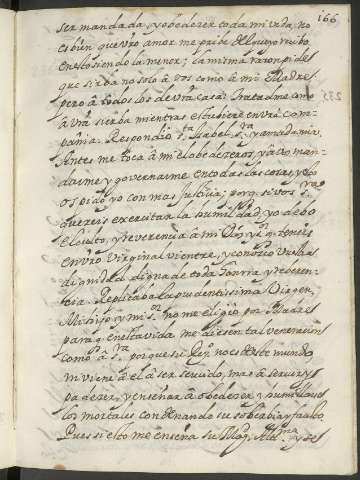 166
ser mandada, y obedezer toda mi vida, no
es bien que vro amor me pribe del que yo recibo
en esto siendo la menor; la misma razon pide
que sirba no solo à vos como à mi Madre
pero à todos los de vra casa: Tratadme como
à vra sierba mientras estubiere en vra com-
pañia. Respondiò Sta Isabel, Sra y amada mia:
Antes me toca à mi el obedezeros, y à vos man-
darme y governarme en todas las cosas, y esto
os pido yo con mas Justicia; porq. si vos Sra
quereis exercitar la humildad, yo debo
el culto, y reverencia à mi Dios, y Sr q. teneis
en vro Virginal vientre, y conozco vuestra
dignidad digna de toda honrra, y reveren-
cia. Replicaba la prudentissima Virgen,
Mi hijo, y mi Sor no me eligiò por Madre
para q. en esta vida me diesen tal veneracion
como à Sra porque su Reyno no es de este mundo
ni viene à el à ser servido, mas à servir y
padezer, y enseñar à obedezer, y humillarse
los mortales condenando su sobervia y fausto
Pues si esto me enseña su Magd Altma y se